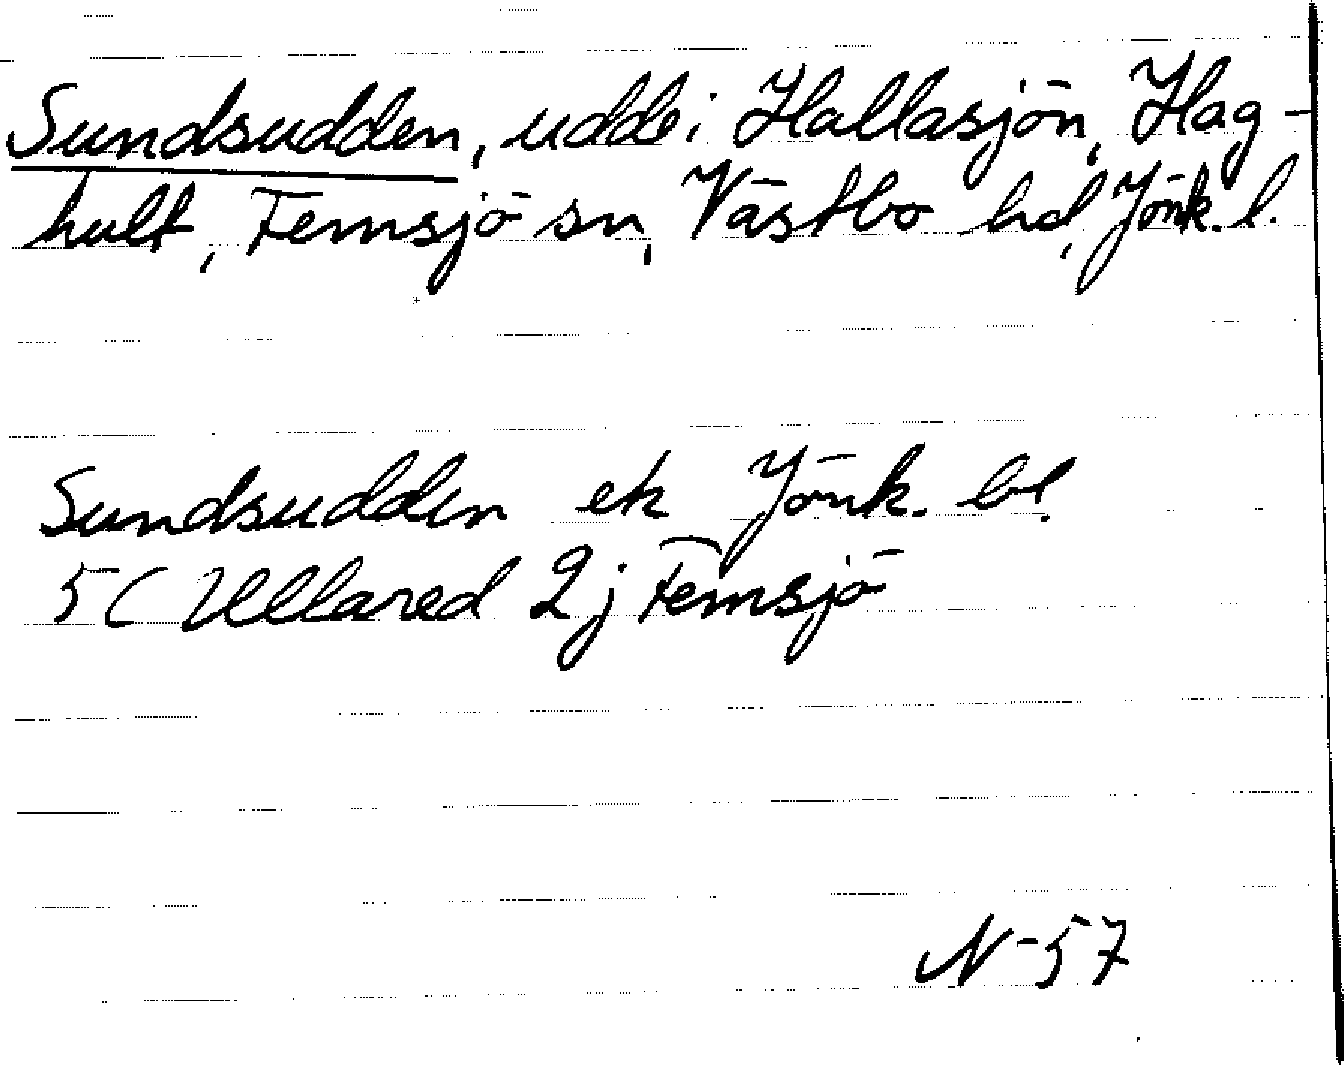 Sundsudden, udde i Hallasjön, Hag-
hult, Femsjö sn, Västbo hd, Jönk. l.
Sundsudden ek Jönk. bl.
5C Ullared 2j Femsjö
N-57